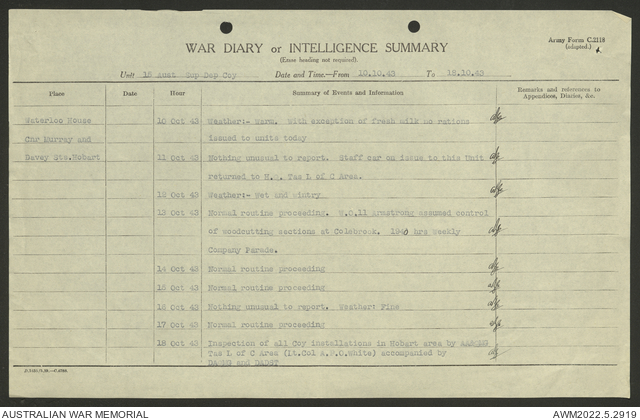 Army Form C.2118
(adapted.)
WAR DIARY or INTELLIGENCE SUMMARY
(Erase heading not required).
Unit 15 Aust Sup Dep Coy Date and Time—From 10.10.43 To 18.10.43
Place Date Hour Summary of Events and Information Remarks and references to Appendices, Diaries, &c.
Waterloo House 10 Oct 43 Weather:- Warm. With exception of fresh milk no rations
Cnr Murray and issued to units today
Davey Sts.Hobart 11 Oct 43 Nothing unusual to report. Staff car on issue to this Unit
returned to H.Q. Tas L of C Area.
12 Oct 43 Weather:- Wet and wintry
13 Oct 43 Normal routine proceeding. W.O.11 Armstrong assumed control
of woodcutting sections at Colebrook. 1940 hrs Weekly
Company Parade.
14 Oct 43 Normal routine proceeding
15 Oct 43 Normal routine proceeding
16 Oct 43 Nothing unusual to report. Weather: Fine
17 Oct 43 Normal routine proceeding
18 Oct 43 Inspection of all Coy installations in Hobart area by
Tas L of C Area (Lt.Col A.F.O.White) accompanied by
and DADST
AUSTRALIAN WAR MEMORIAL AWM2022.5.2919